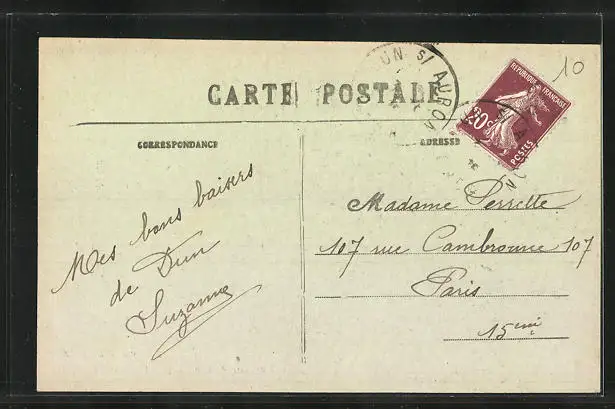 UN S/ AURON
10
RÉPUBLIQUE FRANÇAISE
20c
POSTES
CARTE POSTALE
CORRESPONDANCE
ADRESSE
Mes bons baisers
de Dun
Suzanne
Madame Perrette
107 rue Cambronne 107
Paris
15me